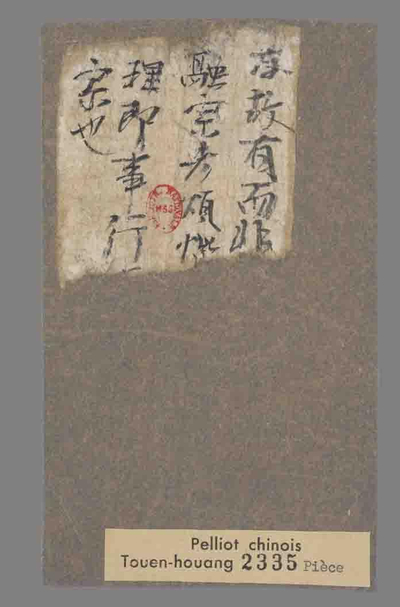 存故有而非
融宗者煩惱
理即事行
宗也
MSS
Pelliot chinois
Touen-houang 2335 Pièce